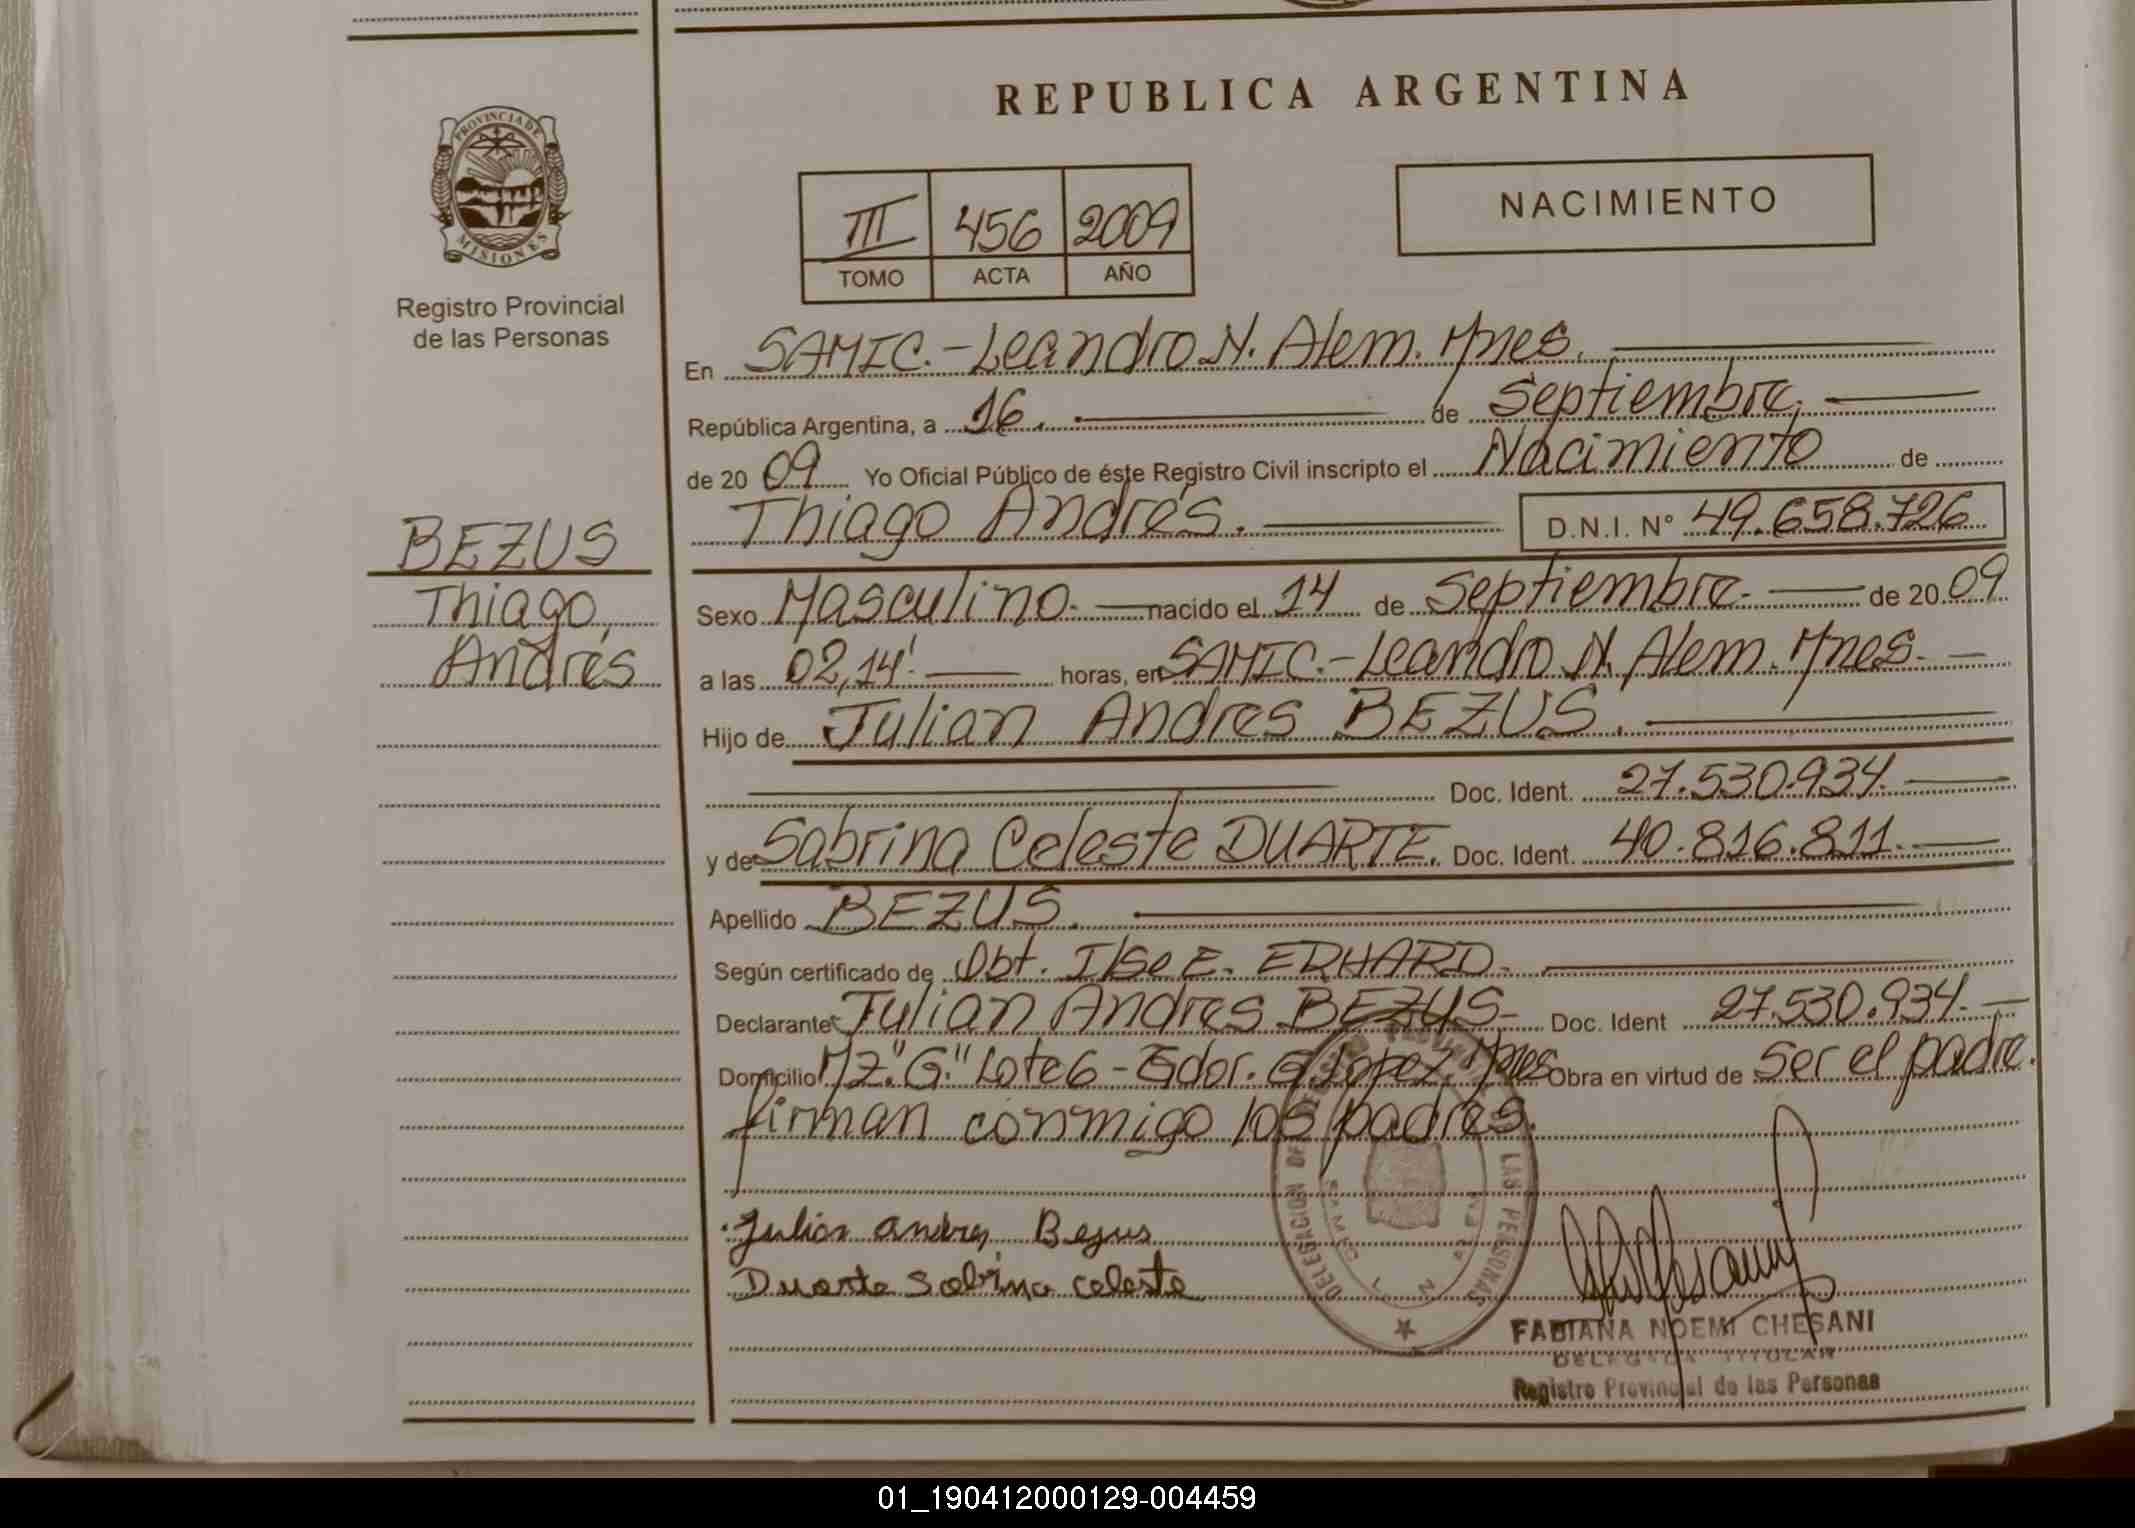 REPUBLICA ARGENTINA
PROVINCIA DE
MISIONES
Registro Provincial
de las Personas
III 456 2009
TOMO ACTA AÑO
NACIMIENTO
En SAMIC.-Leandro N. Alem. Mnes.
República Argentina, a 16. de Septiembre,
de 20 09 Yo Oficial Público de éste Registro Civil inscripto el Nacimiento de
Thiago Andrés. D.N.I. N° 49.658.726
BEZUS
Thiago,
Andrés
Sexo Masculino. nacido el 14 de Septiembre. de 20 09
a las 02,14'. horas, en SAMIC.-Leandro N. Alem. Mnes.
Hijo de Julian Andres BEZUS.
Doc. Ident. 27.530.934.
y de Sabrina Celeste DUARTE. Doc. Ident. 40.816.811.
Apellido BEZUS.
Según certificado de Obt. Ilse E. ERHARD.
Declarante Julian Andres BEZUS- Doc. Ident 27.530.934.
Domicilio Mz."G." Lote 6 - Gdor. G. Lopez, Mnes Obra en virtud de ser el padre.
firman conmigo los padres.
Julian andres Bezus
Duarte Sabrina celeste
DELEGACION DE LAS PERSONAS
FABIANA NOEMI CHESANI
DELEGADA TITULAR
Registro Provincial de las Personas
01_190412000129-004459